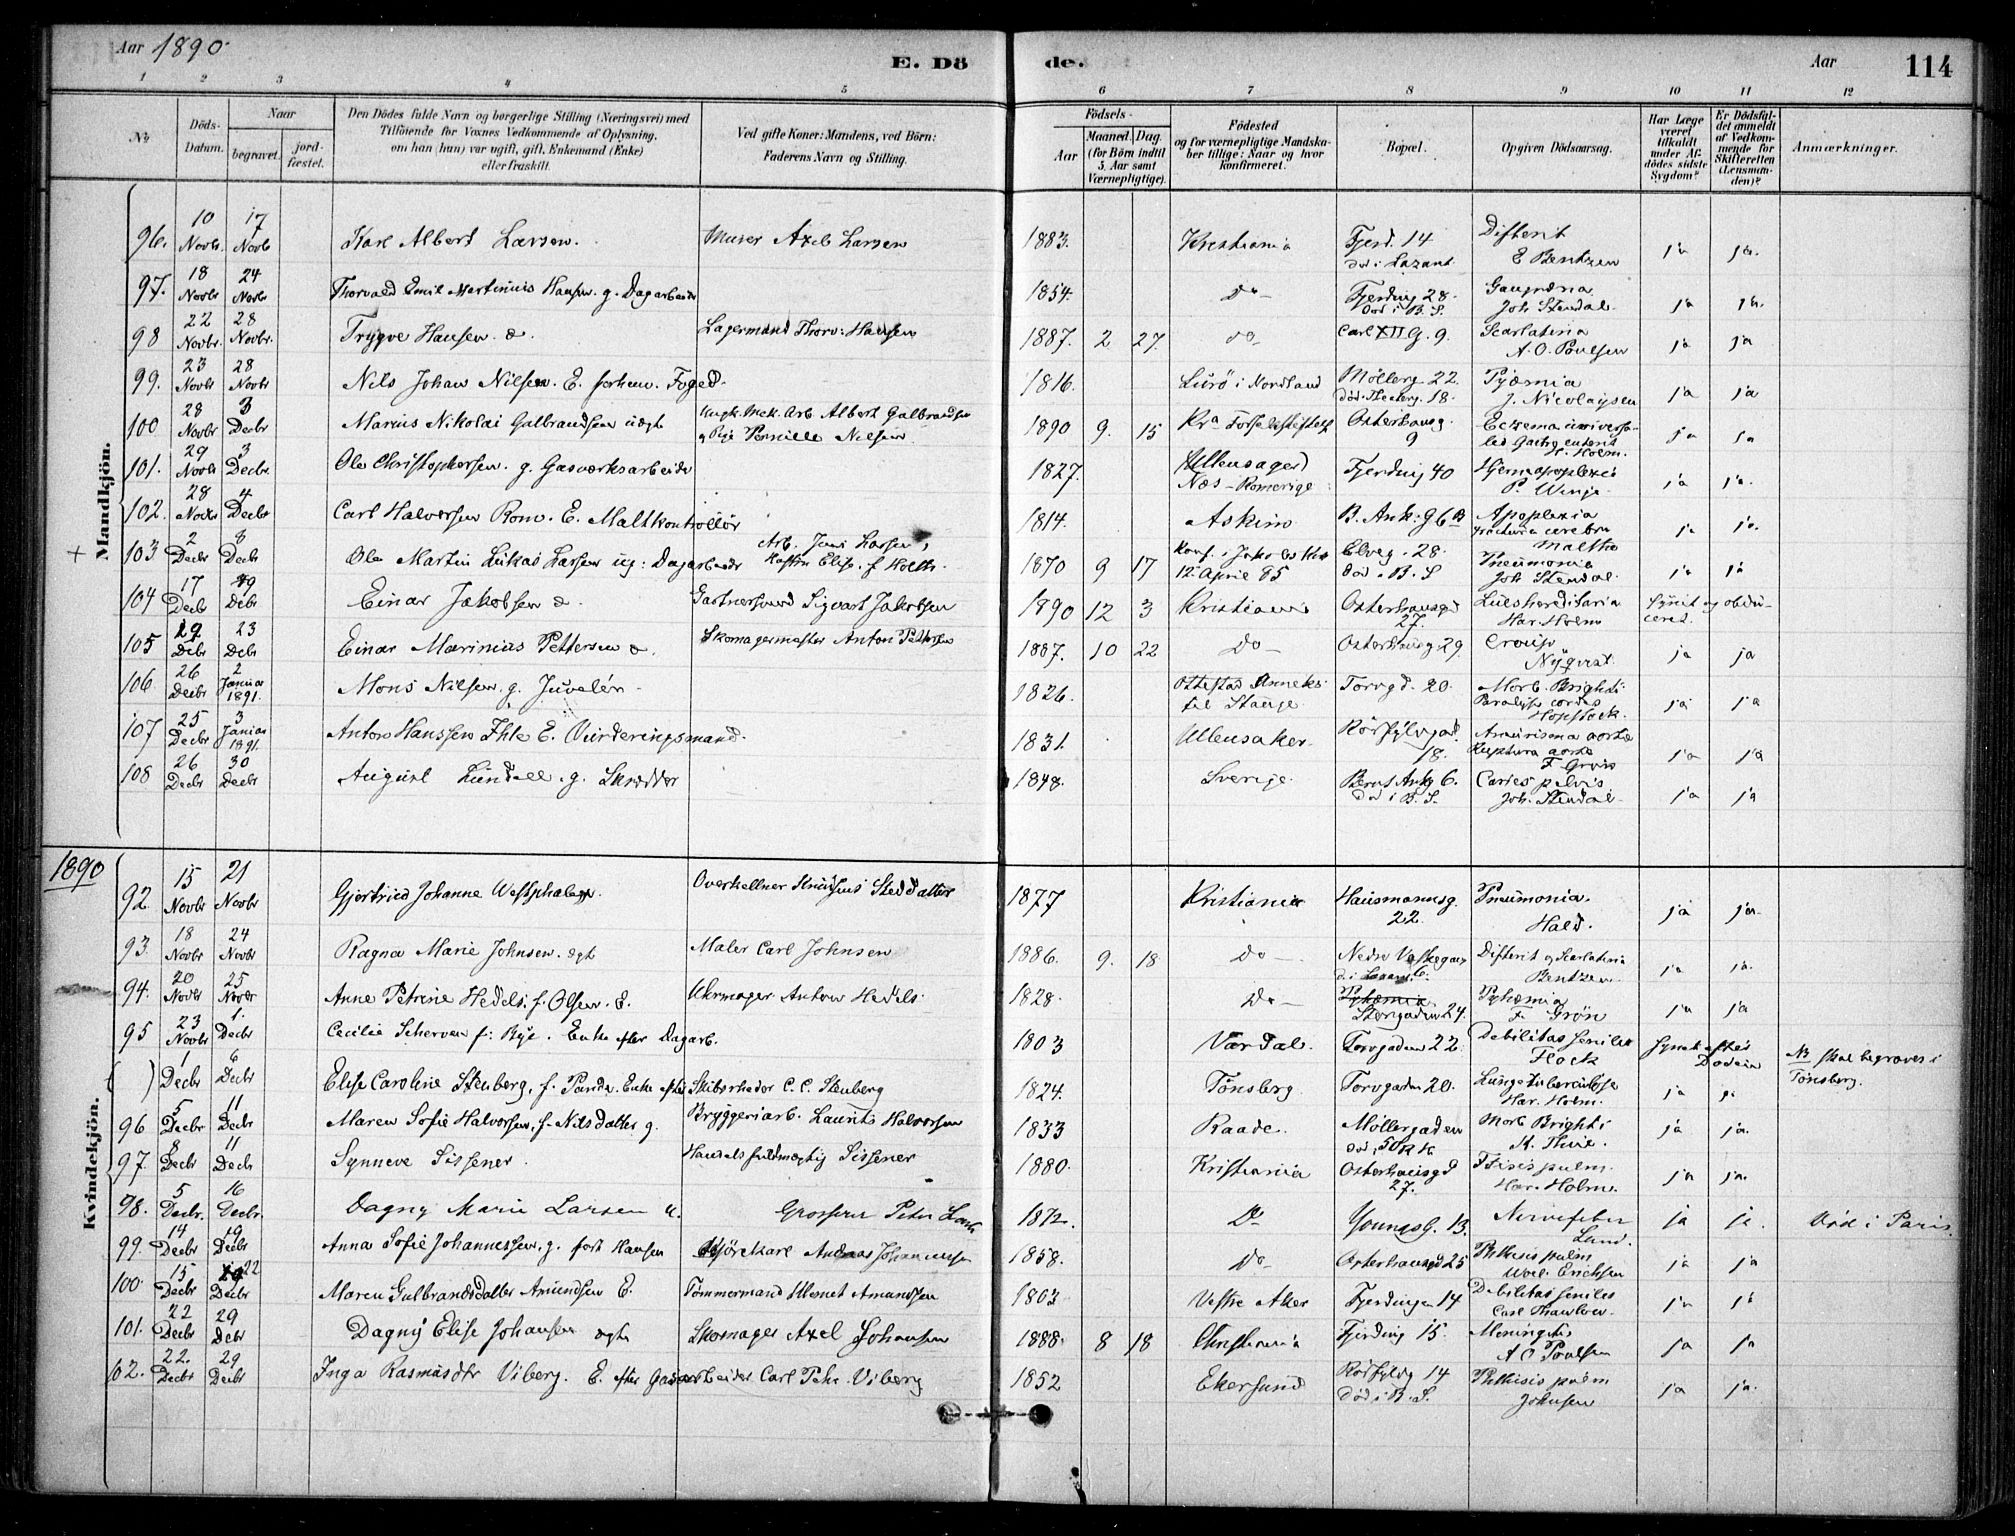 Aar 1890.
E. Döde.
Aar
114
1 2 3 4 5 6 7 8 9 10 11 12
No.
Döds-Datum.
Naar
begravet.
jord-fæstet.
Den Dödes fulde Navn og borgerlige Stilling (Næringsvei) med
Tilföiende for Voxnes Vedkommende af Oplysning,
om han (hun) var ugift, gift, Enkemand (Enke)
eller fraskilt.
Ved gifte Koner: Mandens, ved Börn:
Faderens Navn og Stilling.
Födsels-
Aar
Maaned. Dag.
(for Börn indtil
5 Aar samt
Værnepligtige).
Födested
og for værnepligtige Mandska-
ber tillige: Naar og hvor
konfirmeret.
Bopæl.
Opgiven Dödsaarsag.
Har Læge
været
tilkaldt
under Af-
dödes sidste
Sygdom?
Er Dödsfal-
det anmeldt
af Vedkom-
mende for
Skifteretten
(Lensman-
den)?
Anmærkninger.
Mandkjön.
96. 10 Novbr. 17 Novb Karl Albert Larsen. Murer Axel Larsen 1883. Kristiania Fjerd. 14 død i Lazaret Difterit E Bentzen ja ja.
97. 18 Novbr 24 Novbr Thorvald Emil Martinius Hansen g. Dagarbeider 1854. Do Fjerding 28. Død i B. S. Gangræna Joh Stendal ja ja.
98 22 Novbr. 28 Novbr. Trygve Hansen Lagermand Thorv: Hansen 1887. 2 27. do Carl XII G. 9. Scarlatina A. O. Poulsen ja ja
99. 23 Novbr 28 Novbr Nils Johan Nilsen. E. forhen. Foged. 1816. Lurö i Nordland Møllerg 22. 18. Pyæmia J. Nicolaysen ja ja
100 28 Novbr 3 Decbr Marius Nikolai Galbrandsen uægt Arb Albert Galbrandsen og Pige Pernille Nilsen 1890 9. 15 Kra Fødselsstiftelse Osterhausg. 9 Eczema universa- H. Holm. ja ja
101. 29 Novbr 3 Decbr. Ole Christophersen. g. Gasværksarbeider 1827. (Ullensager) Næs - Romerige Fjerding 40 Hjerneapoplexie P. Winje ja ja.
102. 28 Novbr 4 Decbr Carl Halvorsen Rom. E. Maltkontrollør 1814. Askim B. Ank: g 6 B Apoplexia cerebri Malthe ja ja.
103 2 Decbr 8 Decb Ole Martin Lukas Larsen ug: Dagarbeider Arb. Larsen, Elise f Holth. 1870 9 17 Konf. i Jakobs K 12 April 85 Elveg. 28. død i B. S Pneumonia Joh Stendal. ja ja
104 17 Decbr 19 Decbr Einar Jakobsen Gartnersvend Sigvart Jakobsen 1890 12 3 Kristiania Osterhausgd 27. Lues hereditaria Har. Holm Synet og obdu- ceret.
105 19 Debr 23 Debr Einar Marinius Pettersen Skomagermester Anton Pettersen 1887. 10 22 Do Osterhausg 29. Croup Nyqvist. ja ja
106 26 Decbr 2 Januar 1891. Mons Nilsen. g. Juvelér. 1826. Ottestad Anneks til Stange. Torvgd. 20. Morb. Brighti Paralysis cordis Hopstock. ja ja
107 25 Decbr 3 Januar 1891. Anton Hanssen Ihle E. Vurderingsmand. 1831. Ullensaker. 18. Aneurisma aortæ Ruptura aortæ F Grøn ja ja
108 26 Decbr 30 Decbr August Lundell. g. Skrædder 1848. Sverige. Bernt Ankg 6. Død i B. S. Caries pelvis Joh. Stendal. ja ja
1890
Kvindekjön.
92. 15 Novbr 21 Novbr Gjertried Johanne Westphalen. Overkellner Steddatter 1877 Kristiania Hausmannsg. 22. Pneumonia. Hald. ja ja.
93. 18 Novbr 24 Novbr Ragna Marie Johnsen. ægt Maler Carl Johnsen 1886. 9. 18 Do Nedre 6. Difterit og Scarlatina Bentzen ja ja.
94. 20 Novbr 25 Novbr Anne Petrine Hedels, f. Olsen. E. Uhrmager Anton Hedels. 1828. Do Storgaden 24. Pyhæmia F. Grön ja ja
95 23 Novbr 1. Decbr Cecilie Scherven f: Bye. Enke efter Dagarb. 1803 Værdal. Torvgaden 22. Debilitas senilis Flock Synet efter Døden
( ) 1 Decbr 6 Decbr Elise Caroline Stenberg, f. Enke efter Skibsrheder C. C. Stenberg 1824. Tönsberg. Torvgaden 20. Lungetuberculose Har. Holm. ja ja NB skal begraves i Tönsberg.
96 5 Decbr 11 Decbr Maren Sofie Halvorsen, f. Nilsdatter g. Bryggeriarb. Laurits Halvorsen 1833 Raade. Møllergaden Morb Brighti ja ja.
97. 8 Decbr 11 Decbr Synneve Sissener. Handelsfuldmægtig Sissener 1880. Kristiania Osterhausgd 27. Ftisis pulm. Har. Holm. ja ja.
98. 5 Decbr. 16 Decbr. Dagny Marie Larsen u. Grosserer Peter 1872. Do Youngsg. 13. Nervefeber Lund. ja ja. Död i Paris.
99. 14 Decbr 19 Decbr Anna Sofie Johannessen, g. født Hansen Kjørekarl Andreas Johannessen 1858. Do Osterhausgd 25 Phthisis pulm Erichsen ja ja
100 15 Decbr 22 Decbr Maren Gulbrandsdatter Amundsen E. Tömmermand Amundsen 1803 Vestre Aker Fjerdingen 14 Debilitas seniles Carl Thaulow. ja ja
101. 22 Decbr 29 Debr Dagny Elise Johansen ægte Skomager Axel Johansen 1888. 8 18 Christiania Fjerding 15. Meningitis A O Poulsen ja ja
102. 22. Decbr 29 Decbr Inga Rasmusdtr Viberg. E. efter Gasarbeider Carl Viberg 1852 Ekersund 14 Død i B. S. Phthisis pulm Johnsen ja ja.